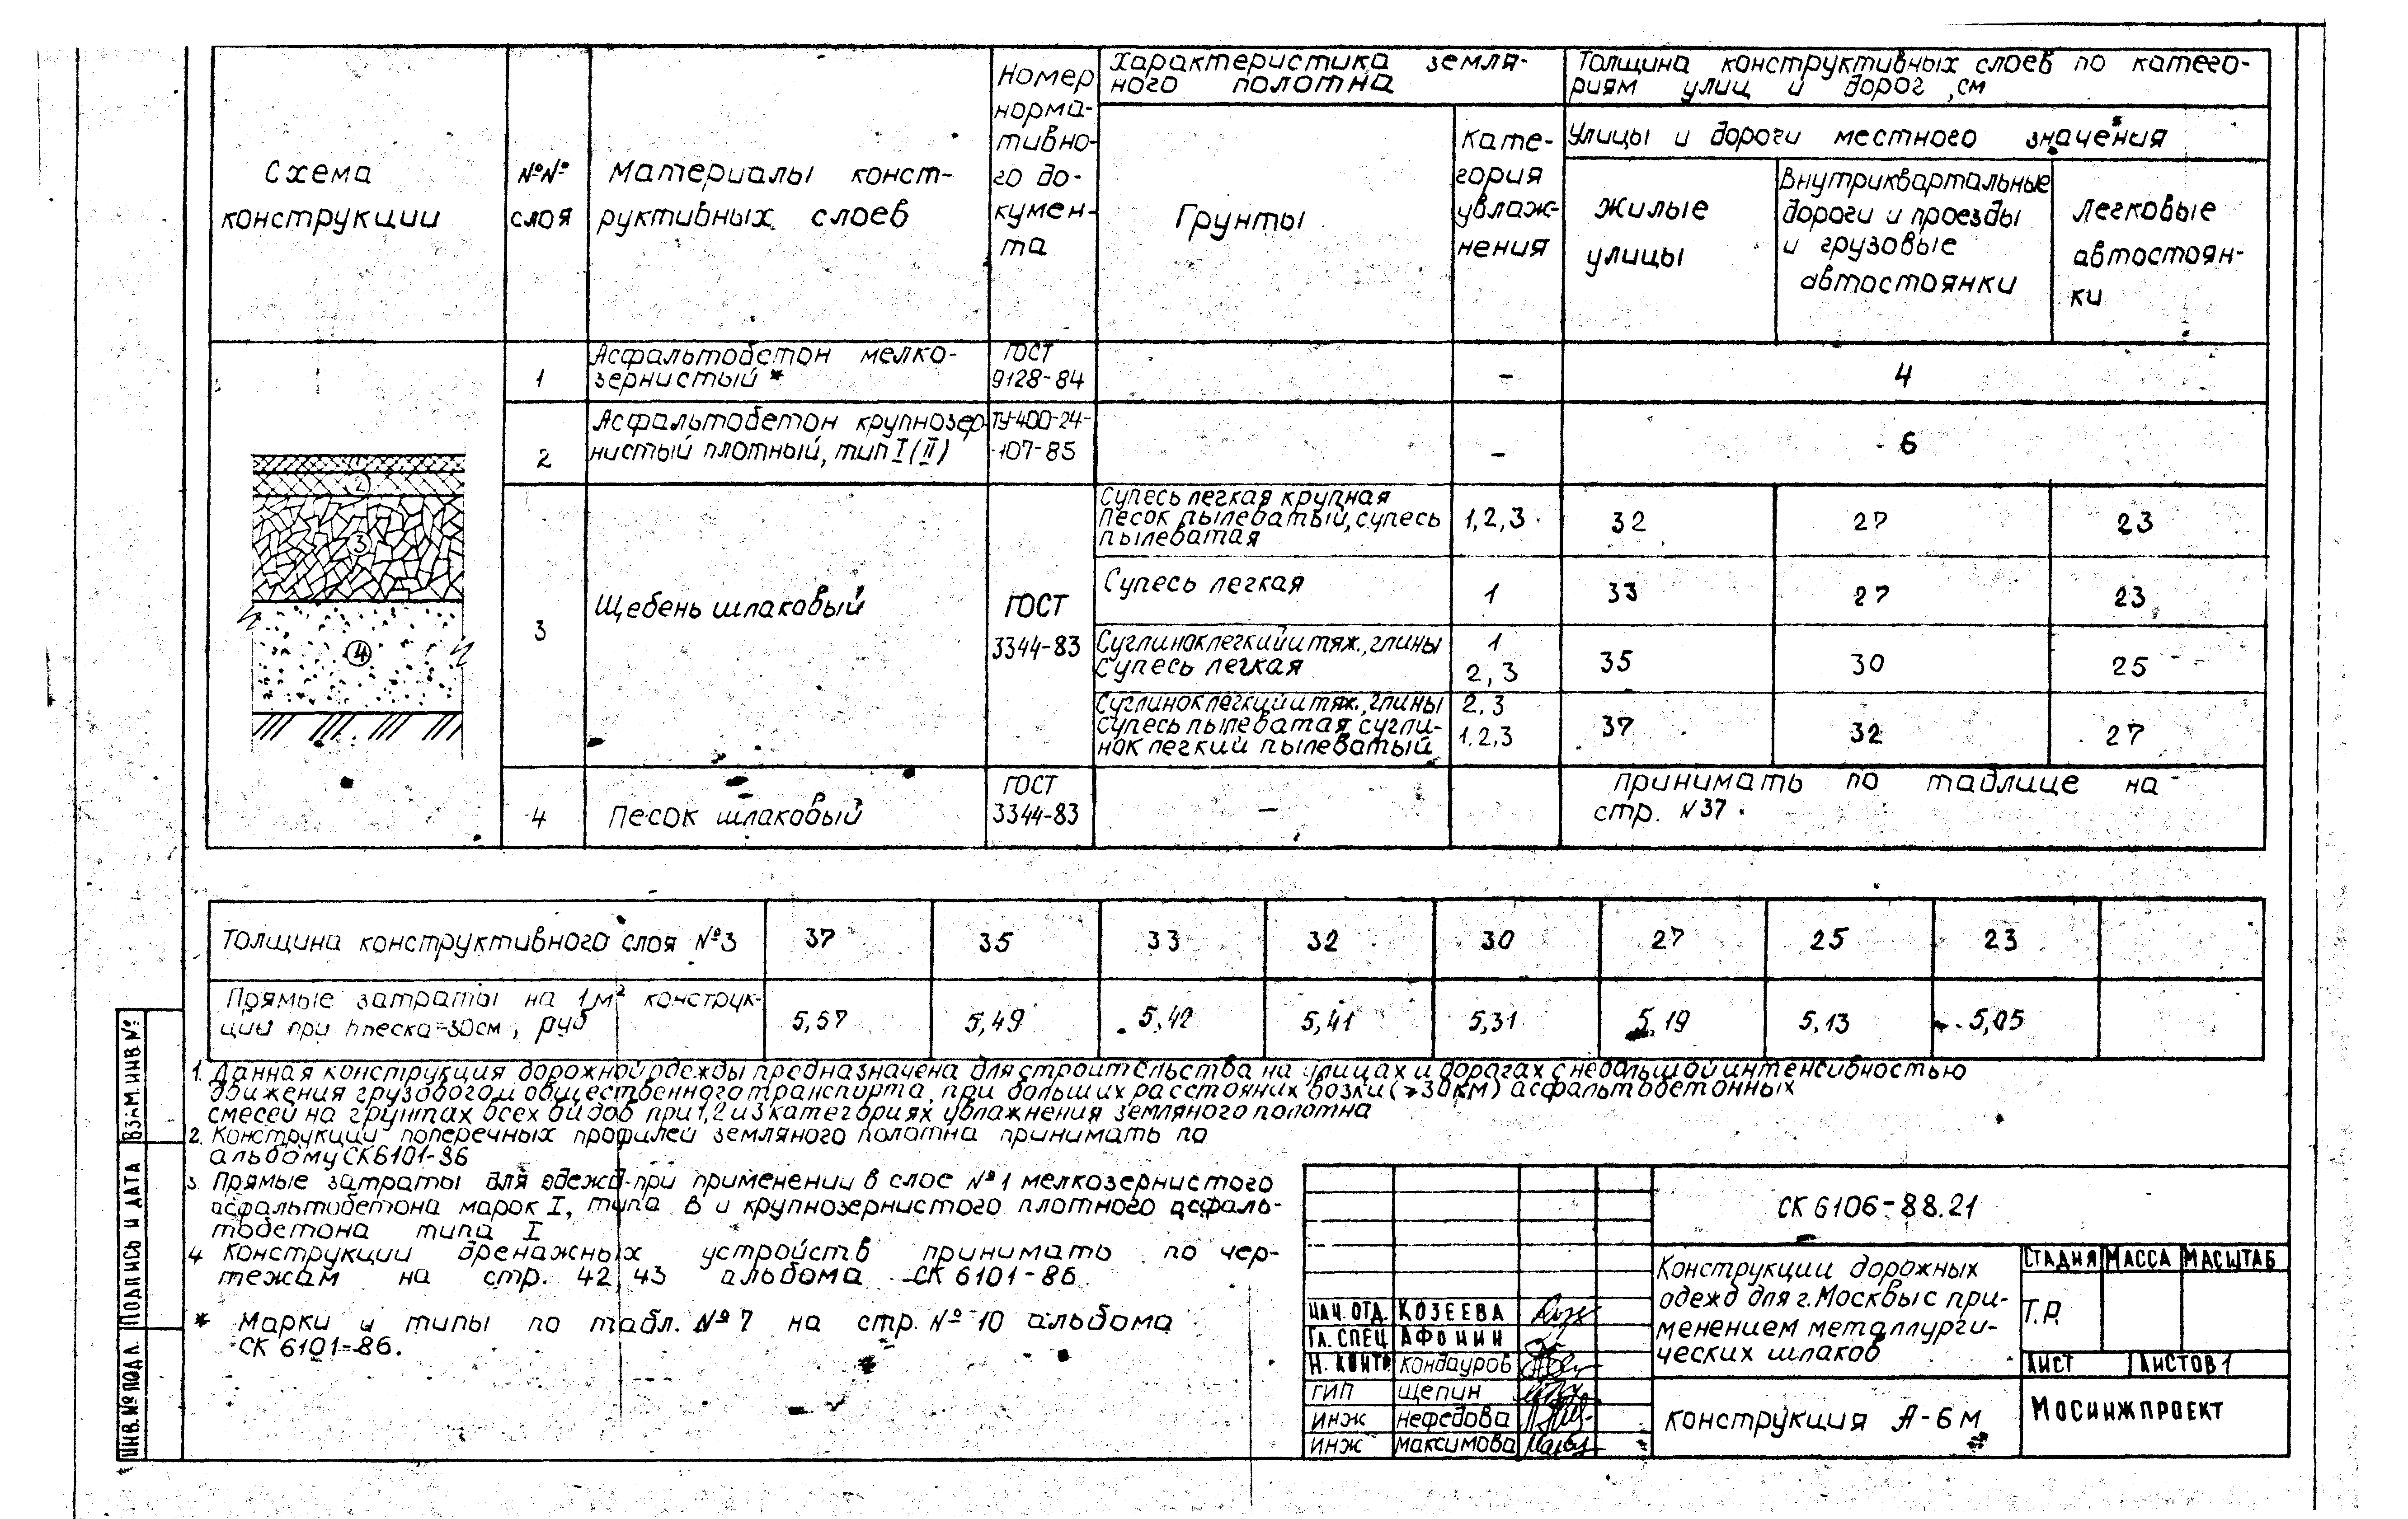 Схема
конструкции
№№
слоя
Материалы конст-
руктивных слоев
Номер
норма-
тивно-
го до-
кумен-
та
Характеристика земля-
ного полотна
Грунты
Кате-
гория
увлаж-
нения
Толщина конструктивных слоев по катего-
риям улиц и дорог, см
Улицы и дороги местного значения
Жилые
улицы
Внутриквартальные
дороги и проезды
и грузовые
автостоянки
Легковые
автостоян-
ки
1
Асфальтобетон мелко-
зернистый *
ГОСТ
9128-84
-
4
2
Асфальтобетон крупнозер
нистый плотный, тип I (II)
ТУ-400-24-
107-85
-
6
2
3
4
3
Щебень шлаковый
ГОСТ
3344-83
Супесь легкая крупная
песок пылеватый, супесь
пылеватая
1,2,3
32
27
23
Супесь легкая
1
33
27
23
Суглинок легкий и тяж., глины
1
Супесь легкая
2,3
35
30
25
Суглинок легкий и тяж., глины
2,3
Супесь пылеватая, сугли-
нок легкий пылеватый
1,2,3
37
32
27
4
Песок шлаковый
ГОСТ
3344-83
-
принимать по таблице на
стр. N 37.
Толщина конструктивного слоя №3
37
35
33
32
30
27
25
23
Прямые затраты на 1 м² конструк-
ции при hпеска=30см, руб
5,57
5,49
5,42
5,41
5,31
5,19
5,13
5,05
1. Данная конструкция дорожной одежды предназначена для строительства на улицах и дорогах с небольшой интенсивностью
движения грузового и общественного транспорта, при больших расстояних возки (≥30км) асфальтобетонных
смесей на грунтах всех видов при 1,2 и 3 категориях увлажнения земляного полотна
2. Конструкции поперечных профилей земляного полотна принимать по
альбому СК6101-86
3 Прямые затраты для одежд при применении в слое №1 мелкозернистого
асфальтобетона марок I, типа В и крупнозернистого плотного асфаль-
тобетона типа I
4 Конструкции дренажных устройств принимать по чер-
тежам на стр. 42, 43 альбома СК 6101-86.
* Марки и типы по табл. №7 на стр. №10 альбома
СК 6101-86.
ВЗАМ. ИНВ №
ПОДПИСЬ И ДАТА
ИНВ. № ПОДЛ.
НАЧ. ОТД. КОЗЕЕВА
ГЛ. СПЕЦ АФОНИН
Н. КОНТР Кондауров
ГИП Щепин
ИНЖ Нефедова
ИНЖ Максимова
СК 6106-88.21
Конструкции дорожных
одежд для г. Москвы с при-
менением металлурги-
ческих шлаков
СТАДИЯ МАССА МАСШТАБ
Т.Р.
ЛИСТ ЛИСТОВ 1
Конструкция А-6м
МОСИНЖПРОЕКТ